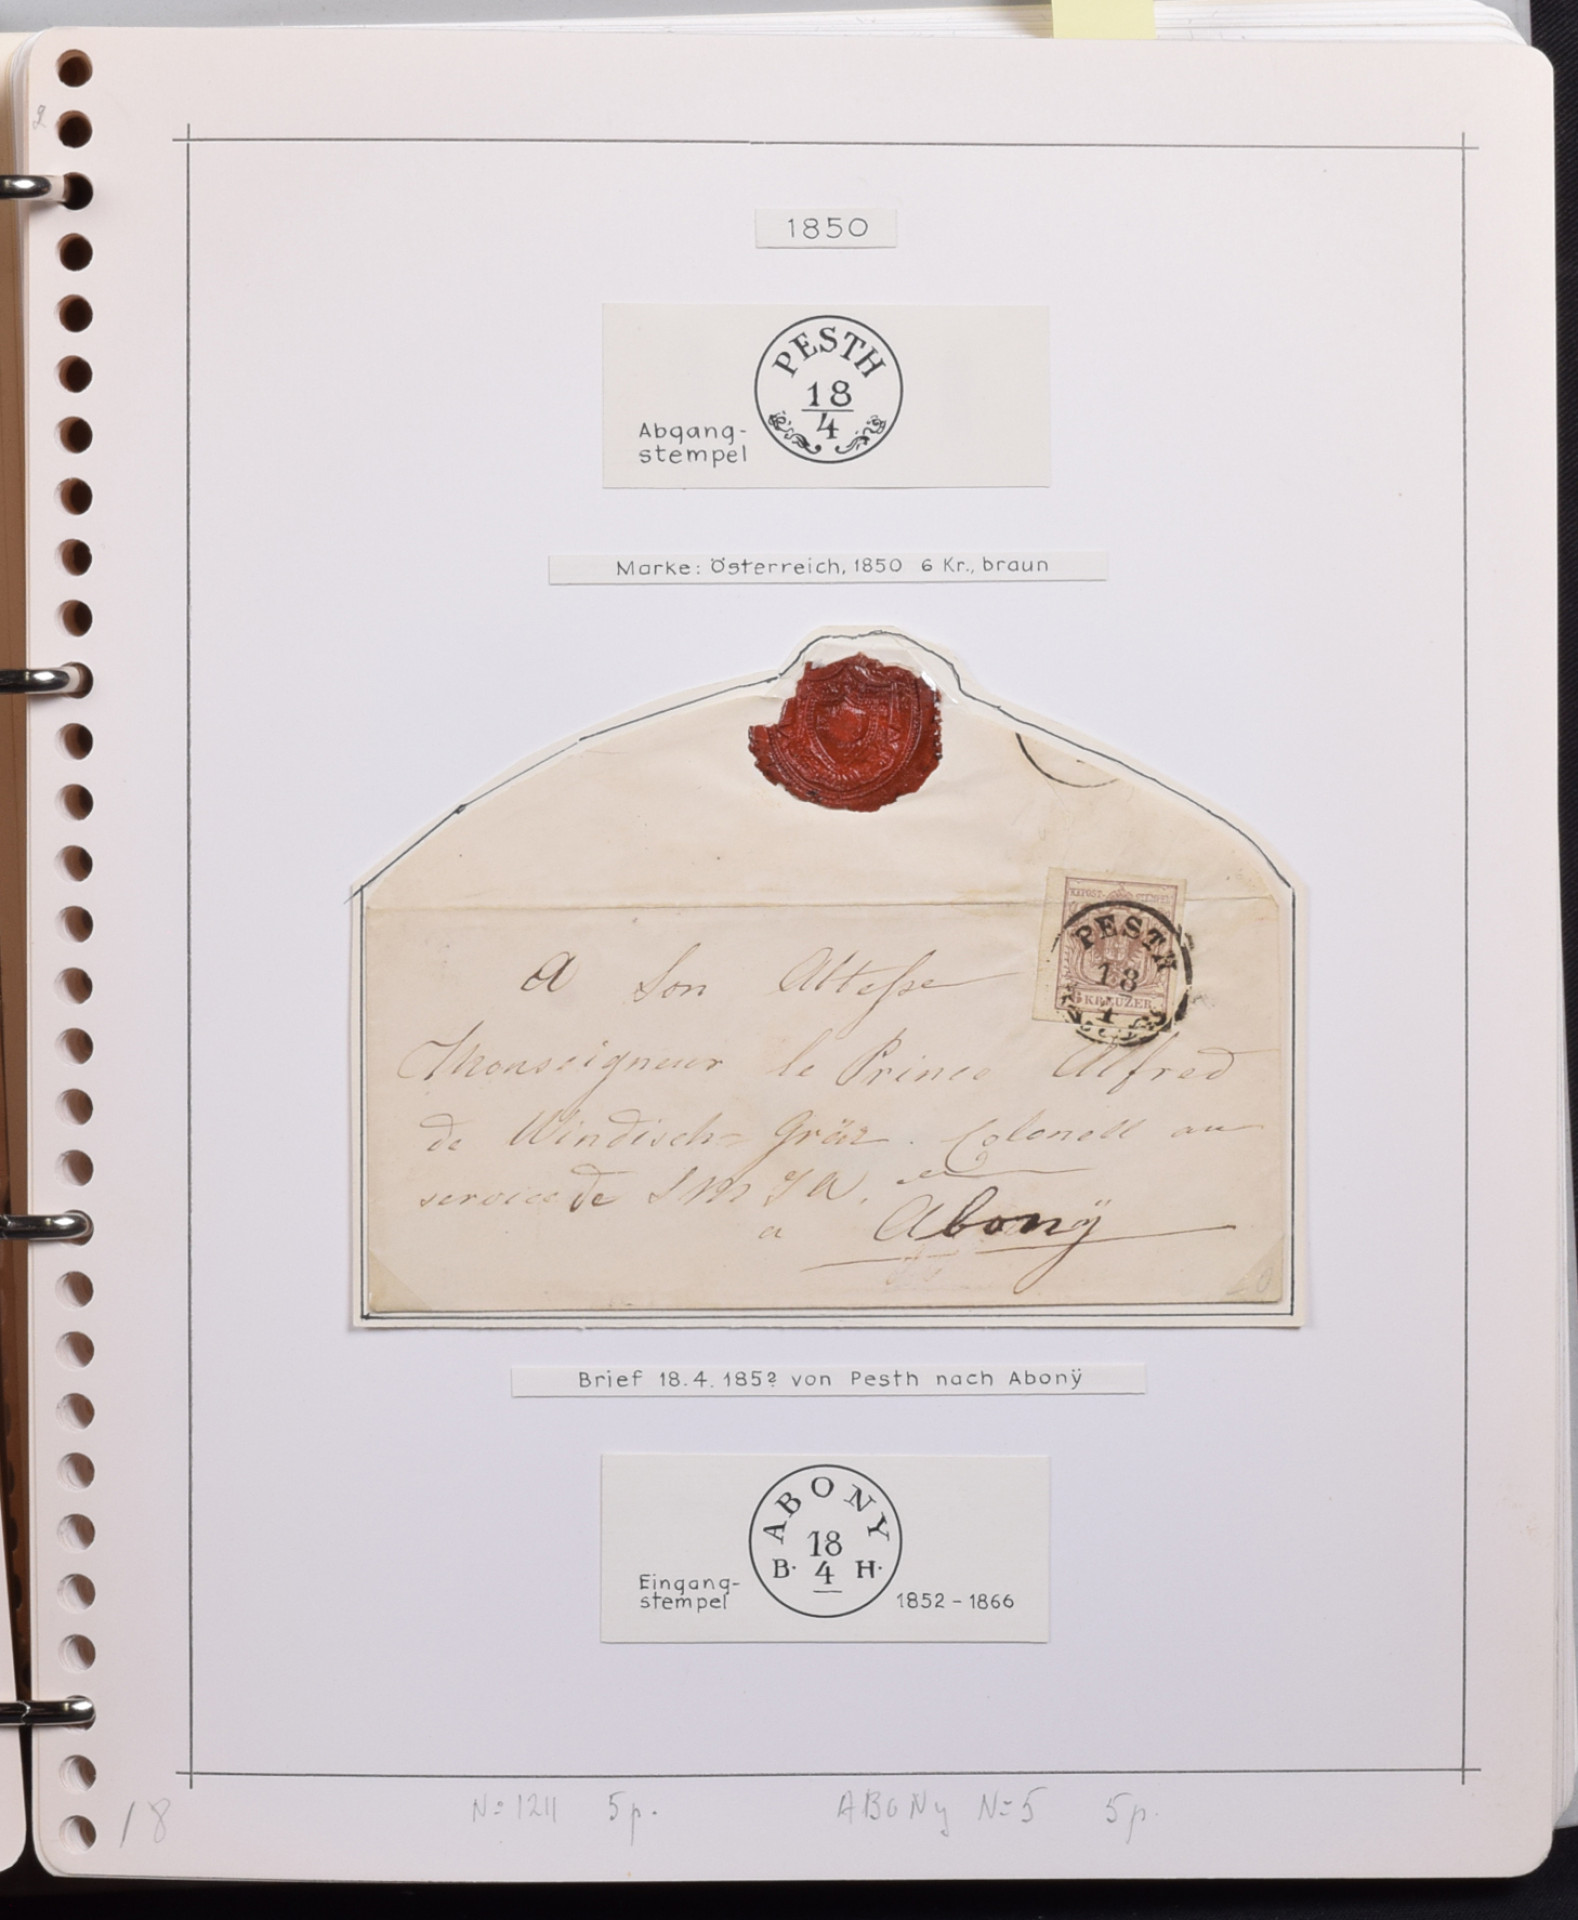 1850
PESTH
18
4
Abgang-
stempel
Marke: Österreich, 1850 6 Kr., braun
PESTH
18
4
6 KREUZER
A Son Altesse
Monseigneur le Prince Alfred
de Windisch= Grätz. Colonell au
service de S M I
a Abonÿ
Brief 18.4.185? von Pesth nach Abonÿ
ABONY
18
B. 4 H.
Eingang-
stempel
1852 - 1866
18
No 1211 5 p.
ABONy No 5 5 p.